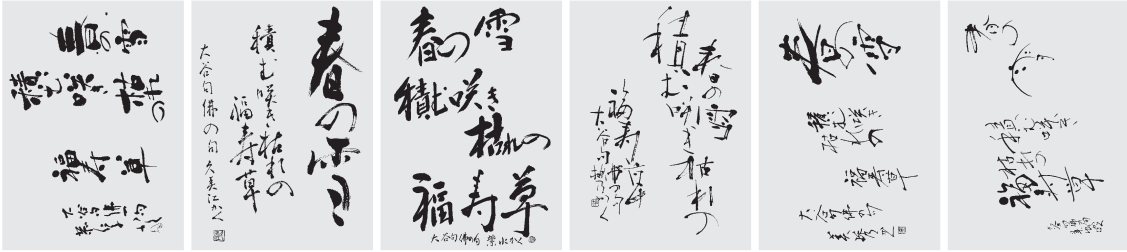 春の雪
積む咲き枯れの
福寿草
大谷句佛の句
春の雪
積む咲き枯れの
福寿草
大谷句佛の句 久美江かく
春の雪
積む咲き
枯れの
福寿草
大谷句佛の句 紫水かく
春の雪
積む咲き枯れの
福寿草
大谷句佛の句
春雪
積む咲き
枯れの
福寿草
大谷句佛の句
春の雪
積む咲き
枯れの
福寿草